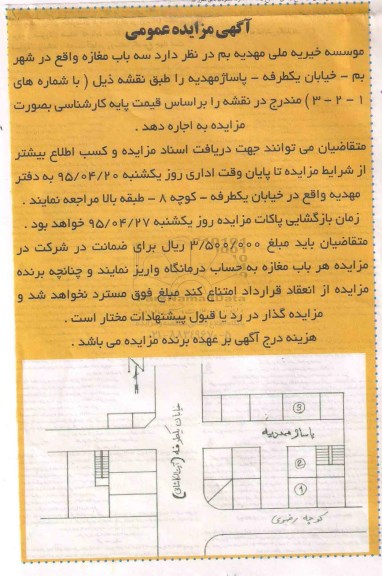 آگهی مزایده عمومی
موسسه خیریه ملی مهدیه بم در نظر دارد سه باب مغازه واقع در شهر
بم - خیابان یکطرفه - پاساژمهدیه را طبق نقشه ذیل ( با شماره های
۱ - ۲ - ۳ ) مندرج در نقشه را براساس قیمت پایه کارشناسی بصورت
مزایده به اجاره دهد .
متقاضیان می توانند جهت دریافت اسناد مزایده و کسب اطلاع بیشتر
از شرایط مزایده تا پایان وقت اداری روز یکشنبه ۹۵/۰۴/۲۰ به دفتر
مهدیه واقع در خیابان یکطرفه - کوچه ۸ - طبقه بالا مراجعه نمایند .
زمان بازگشایی پاکات مزایده روز یکشنبه ۹۵/۰۴/۲۷ خواهد بود .
متقاضیان باید مبلغ ۳/۵۰۰/۰۰۰ ریال برای ضمانت در شرکت در
مزایده هر باب مغازه به حساب درمانگاه واریز نمایند و چنانچه برنده
مزایده از انعقاد قرارداد امتناع کند مبلغ فوق مسترد نخواهد شد و
مزایده گذار در رد یا قبول پیشنهادات مختار است .
هزینه درج آگهی بر عهده برنده مزایده می باشد .
خیابان یکطرفه
۳
پاساژ مهدیه
۲
۱
کوچه رضوی